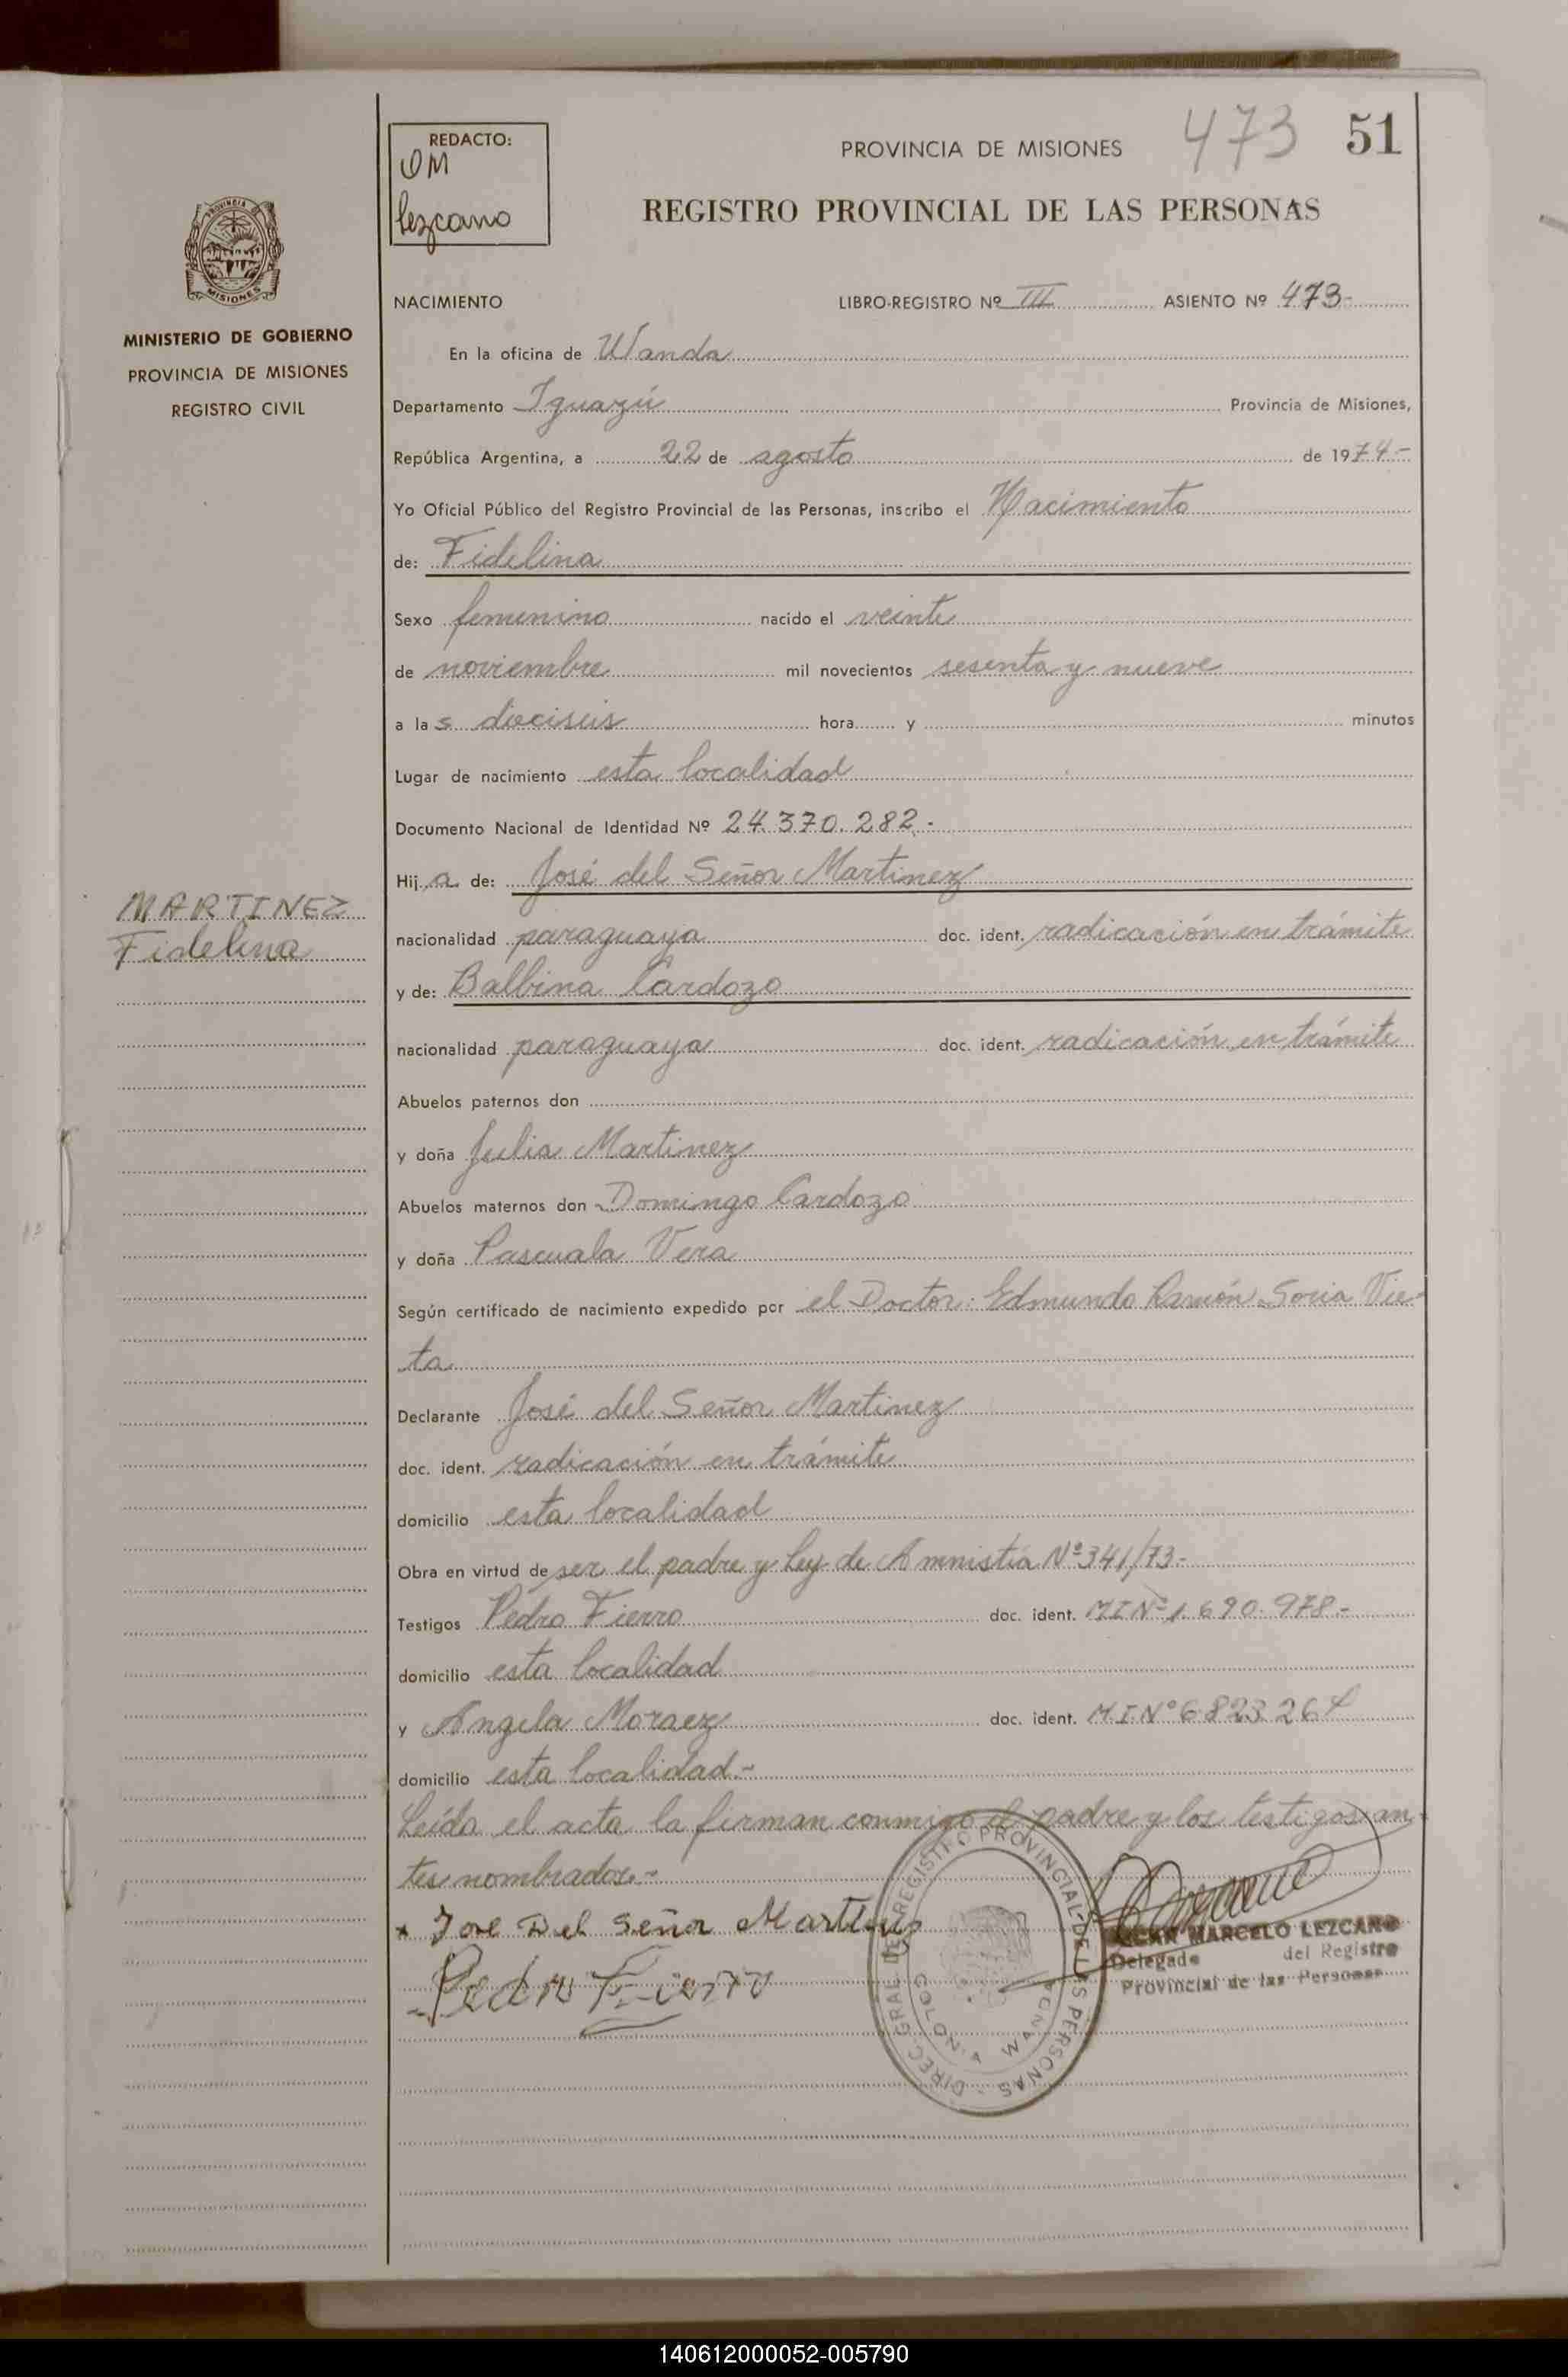 REDACTO:
OM
Lezcano
PROVINCIA DE MISIONES
473
51
REGISTRO PROVINCIAL DE LAS PERSONAS
PROVINCIA DE
MISIONES
MINISTERIO DE GOBIERNO
PROVINCIA DE MISIONES
REGISTRO CIVIL
NACIMIENTO LIBRO-REGISTRO Nº III ASIENTO Nº 473-
En la oficina de Wanda
Departamento Iguazú Provincia de Misiones,
República Argentina, a 22 de agosto de 1974-
Yo Oficial Público del Registro Provincial de las Personas, inscribo el Nacimiento
de: Fidelina
Sexo femenino nacido el veinte
de noviembre mil novecientos sesenta y nueve
a las dieciseis hora y minutos
Lugar de nacimiento esta localidad
Documento Nacional de Identidad Nº 24.370.282.-
Hija de: José del Señor Martinez
MARTINEZ
Fidelina
nacionalidad paraguaya doc. ident. radicación en trámite
y de: Balbina Cardozo
nacionalidad paraguaya doc. ident. radicación en trámite
Abuelos paternos don
y doña Julia Martinez
Abuelos maternos don Domingo Cardozo
y doña Pascuala Vera
Según certificado de nacimiento expedido por el Doctor: Edmundo Ramón Soria Vie-
ta
Declarante José del Señor Martinez
doc. ident. radicación en trámite
domicilio esta localidad
Obra en virtud de ser el padre y Ley de Amnistía Nº 341/73.-
Testigos Pedro Fierro doc. ident. MI Nº 1.690.978.-
domicilio esta localidad
y Angela Moraez doc. ident. M.I. Nº 6823264
domicilio esta localidad.-
Leída el acta la firman conmigo el padre y los testigos an-
tes nombrados.-
x Jose Del Señor Martines
Pedro Fierro
DIREC. GRAL. DEL REGISTRO PROVINCIAL DE LAS PERSONAS
COLONIA WANDA
MARCELO LEZCANO
Delegado del Registro
Provincial de las Personas
140612000052-005790